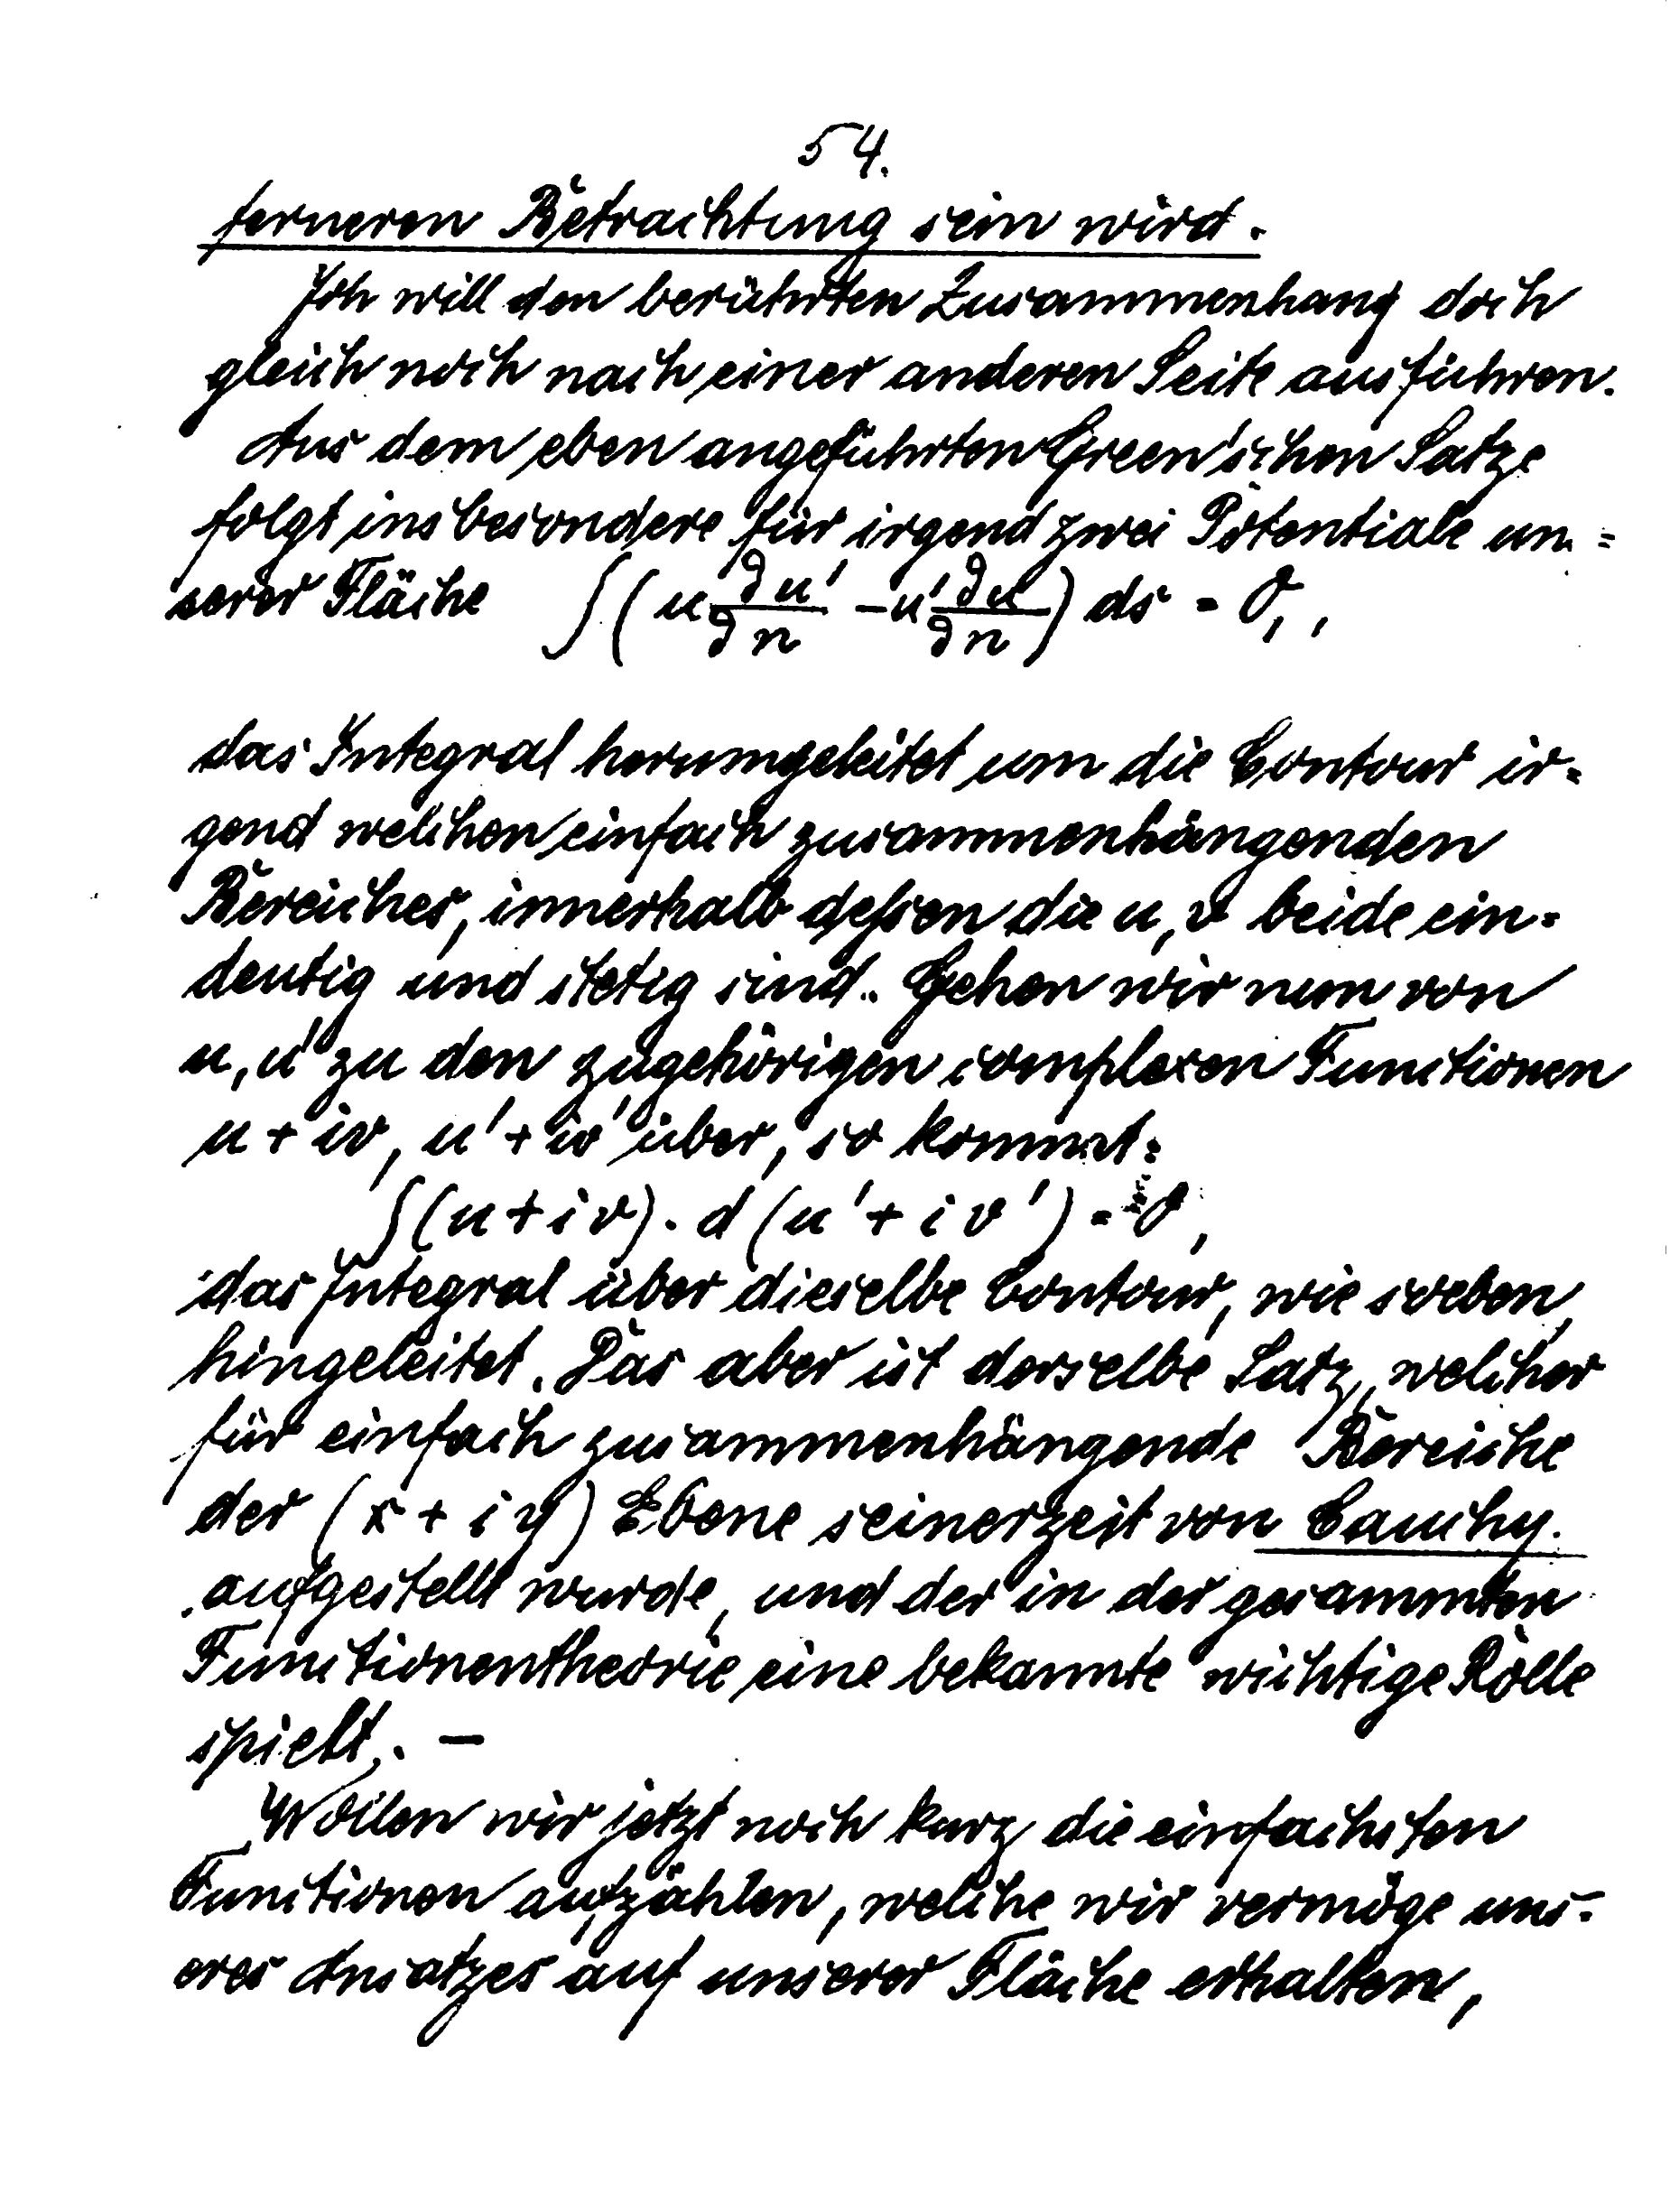 54.
ferneren Betrachtung sein wird.
Ich will den berührten Zusammenhang doch
gleich noch nach einer anderen Seite ausführen.
Aus dem eben angeführten Green'schen Satze
folgt insbesondere für irgend zwei Potentiale un=
serer Fläche ∫(u ∂u'/∂n − u' ∂u/∂n) ds = 0,,
das Integral herumgeleitet um die Contour ir=
gend welchen einfach zusammenhängenden
Bereiches, innerhalb dessen die u, v beide ein=
deutig und stetig sind. Gehen wir nun von
u, u' zu den zugehörigen complexen Functionen
u + iv, u' + iv' über, so kommt:
∫(u + iv). d(u' + iv') = 0,
das Integral über dieselbe Contour, wie soeben,
hingeleitet. Das aber ist derselbe Satz, welcher
für einfach zusammenhängende Bereiche
der (x + iy) Ebene seinerzeit von Cauchy
aufgestellt wurde, und der in der gesammten
Functionentheorie eine bekannte wichtige Rolle
spielt. —
Wollen wir jetzt noch kurz die einfachsten
Functionen aufzählen, welche wir vermöge uns=
eres Ansatzes auf unserer Fläche erhalten,